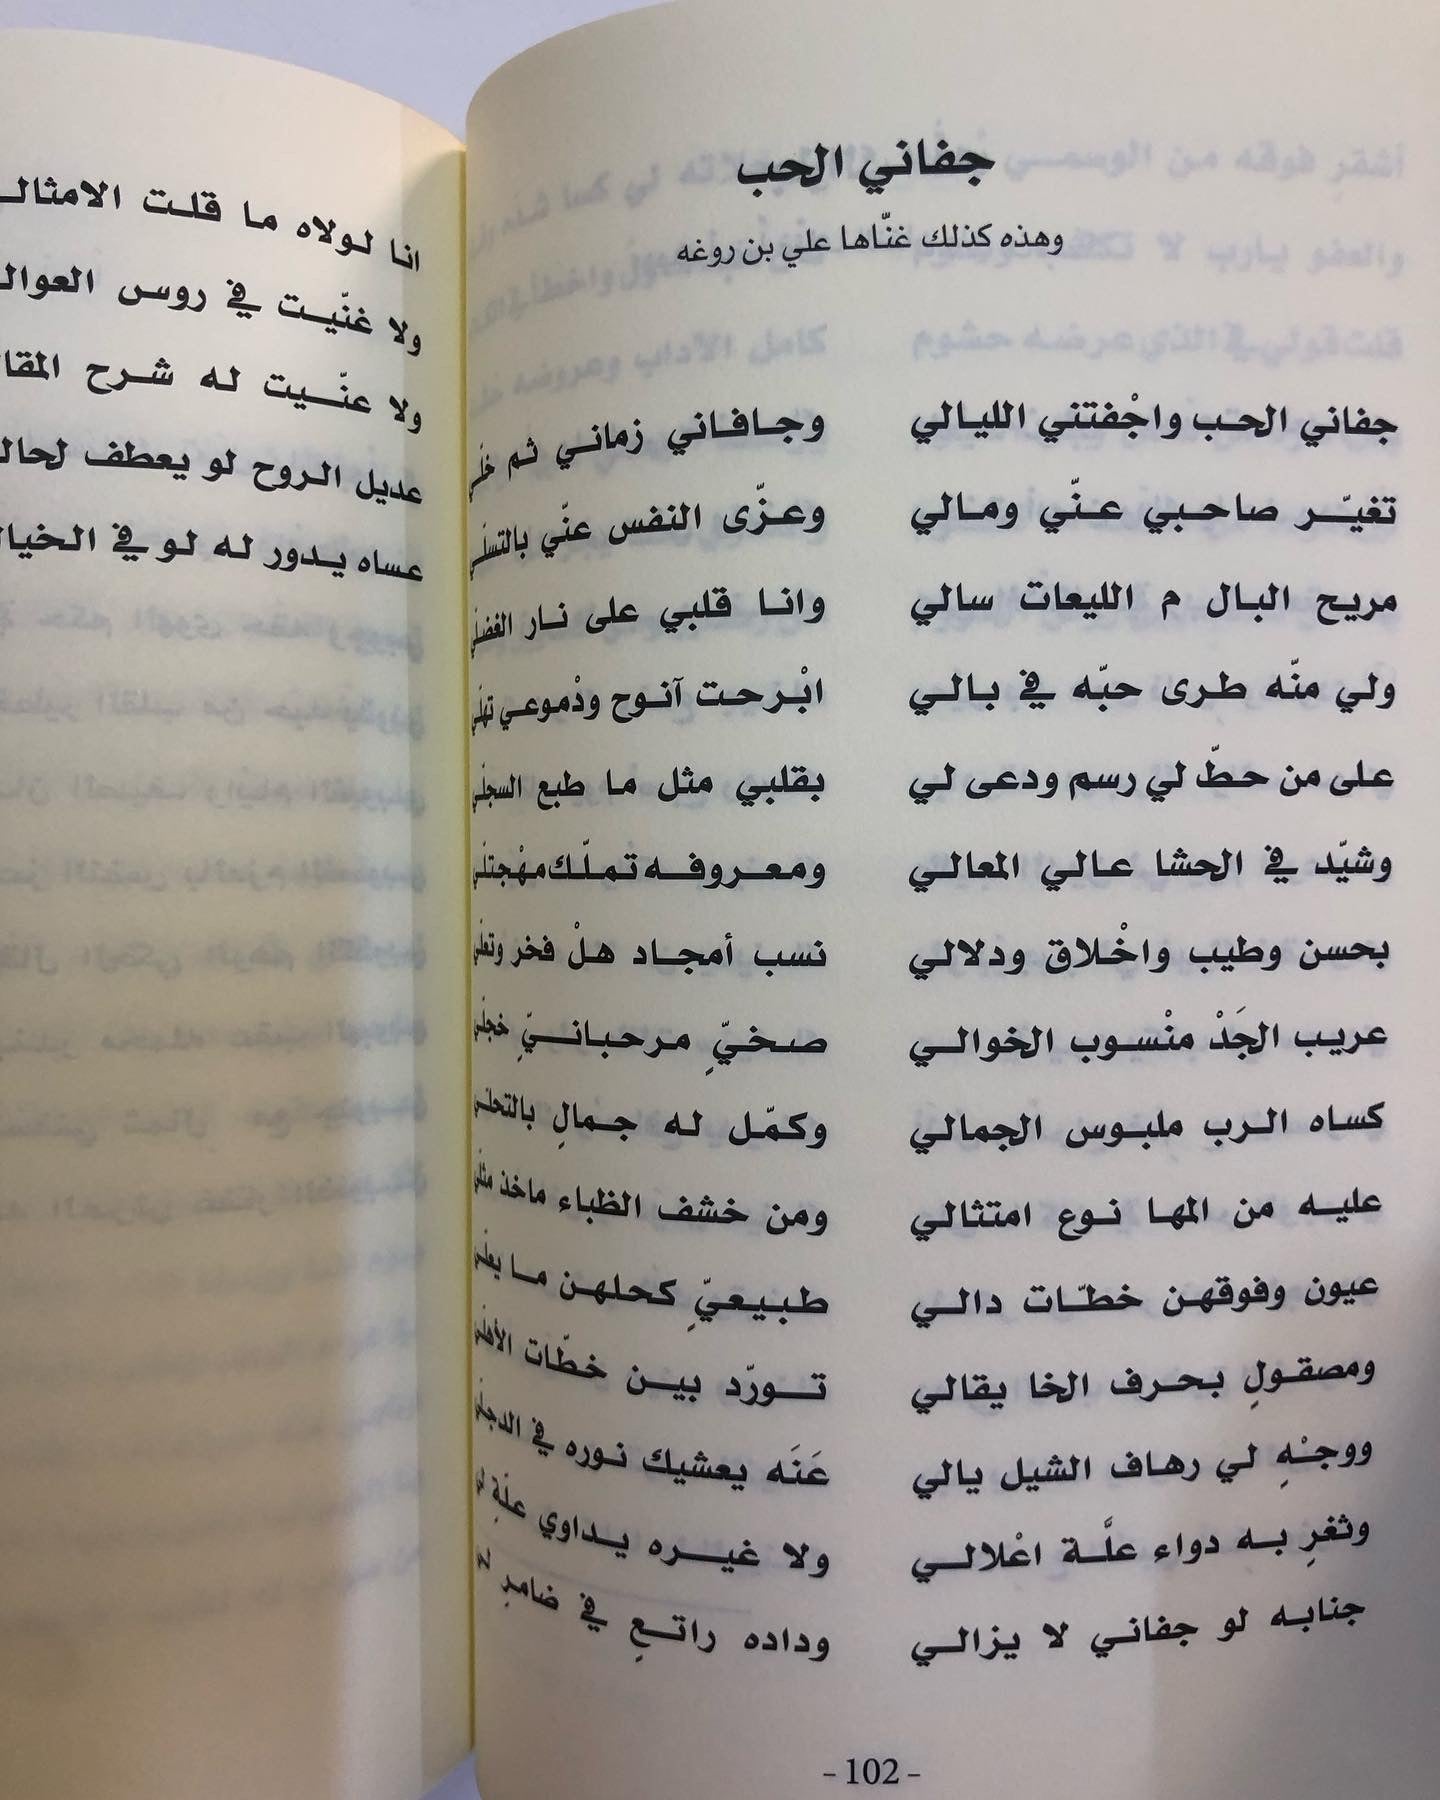 جفاني الحب
وهذه كذلك غنّاها علي بن روغه
جفاني الحب واجْفتني الليالي وجافاني زماني ثم خلّي
تغيّر صاحبي عنّي ومالي وعزّى النفس عنّي بالتسلّي
مريح البال م الليعات سالي وانا قلبي على نار الغضلّي
ولي منّه طرى حبّه في بالي ابْرحت آنوح ودْموعي تهلّي
على من حطّ لي رسم ودعى لي بقلبي مثل ما طبع السجلّي
وشيّد في الحشا عالي المعالي ومعروفه تملّك مهْجتلّي
بحسن وطيب واخْلاق ودلالي نسب أمجاد هلْ فخر وتعلّي
عريب الجَدْ منْسوب الخوالي صخيٍّ مرحبانيٍّ خجلّي
كساه الرب ملبوس الجمالي وكمّل له جمالٍ بالتحلّي
عليه من المها نوع امتثالي ومن خشف الظباء ماخذ مثلّي
عيون وفوقهن خطّات دالي طبيعيٍّ كحلهن ما يعلّي
ومصقولٍ بحرف الخا يقالي تورّد بين خطّات الأهلّي
ووجْهٍ لي رهاف الشيل يالي عَنَه يعشيك نوره في الدجلّي
وثغرٍ به دواء علَّة اعْلالي ولا غيره يداوي علّةٍ لي
جنابه لو جفاني لا يزالي وداده راتعٍ في ضامرٍ
- 102 -
انا لولاه ما قلت
ولا غنّيت في روس
ولا عنّيت له شرح
عديل الروح لو يعطف
عساه يدور له لو في